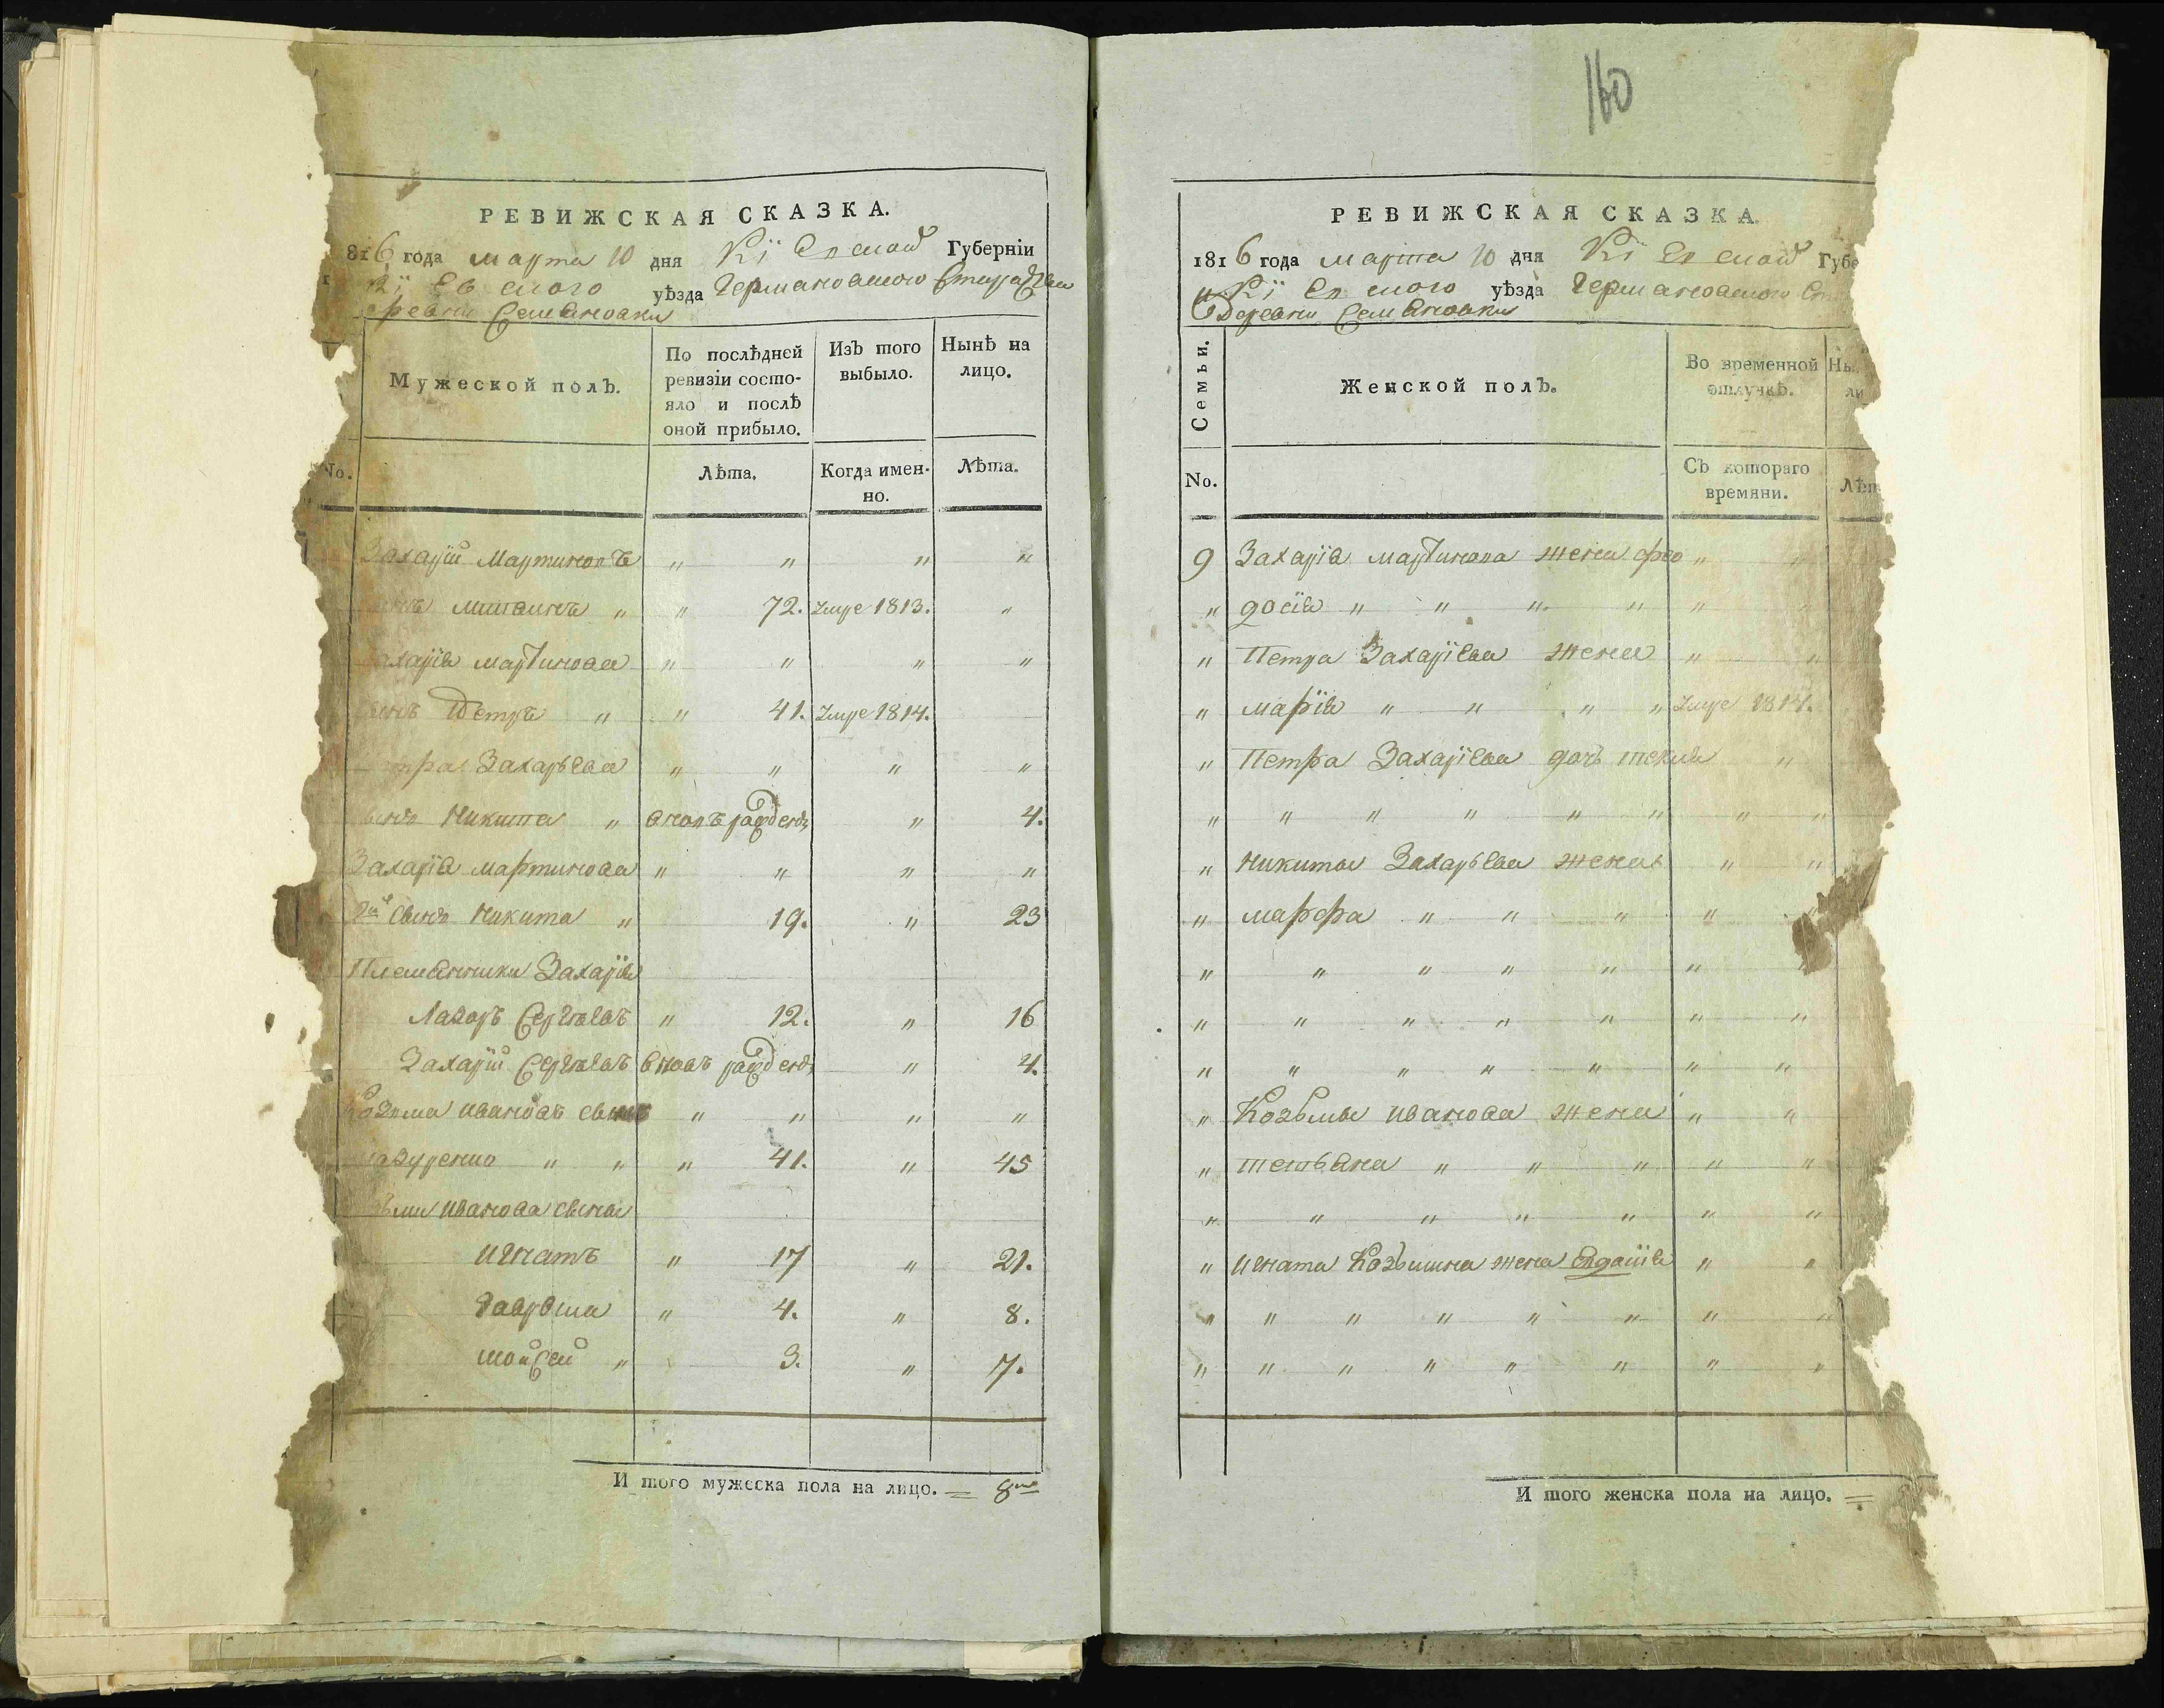 РЕВИЖСКАЯ СКАЗКА.
816 года марта 10 дня Кіевской Губерніи
Кіевского уѣзда Германовского Староства
деревни Семеновки
Мужеской полъ.
По послѣдней ревизіи состояло и послѣ оной прибыло.
Изъ того выбыло.
Нынѣ на лицо.
No.
Лѣта.
Когда именно.
Лѣта.
Захарій Мартиновъ " " " "
72. умре 1813. "
Захарія Мартинова " " " "
сынъ Петръ " " 41. умре 1814.
Петра Захарьева " " " "
сынъ Никита " вновь рожденъ " 4.
Захарія Мартинова " " " "
2й сынъ Никита " 19. " 23
Племянники Захарія
Лазоръ Сергѣевъ " 12. " 16
Захарій Сергѣевъ вновь рожденъ " 4.
Козма Ивановъ сынъ " " " "
Мазуренко " " " 41. " 45
Иванова сыны
Игнатъ " 17 " 21.
Гаврила " 4. " 8.
Мойсей " 3. " 7.
И того мужеска пола на лицо. = 8
160
РЕВИЖСКАЯ СКАЗКА.
1816 года марта 10 дня Кіевской Губе
Кіевского уѣзда Германовского Ста
Деревни Семеновки
Семьи.
Женской полъ.
Во временной отлучкѣ.
Ны
ли
No.
Съ котораго времяни.
Лѣт
9 Захарія Мартинова жена Фео " "
" досія " " " " " "
" Петра Захаріева жена " "
" Марія " " " " умре 1814.
" Петра Захаріева дочь Текля "
" " " " " " " "
" Никиты Захарьева жена " "
" Марфа " " " " "
" " " " " " "
" " " " " " "
" " " " " " "
" Козьмы Иванова жена " "
" Тетьяна " " " " "
" " " " " " "
" Игната Козьмина жена Евдокія " "
" " " " " " " "
" " " " " " " "
И того женска пола на лицо. =